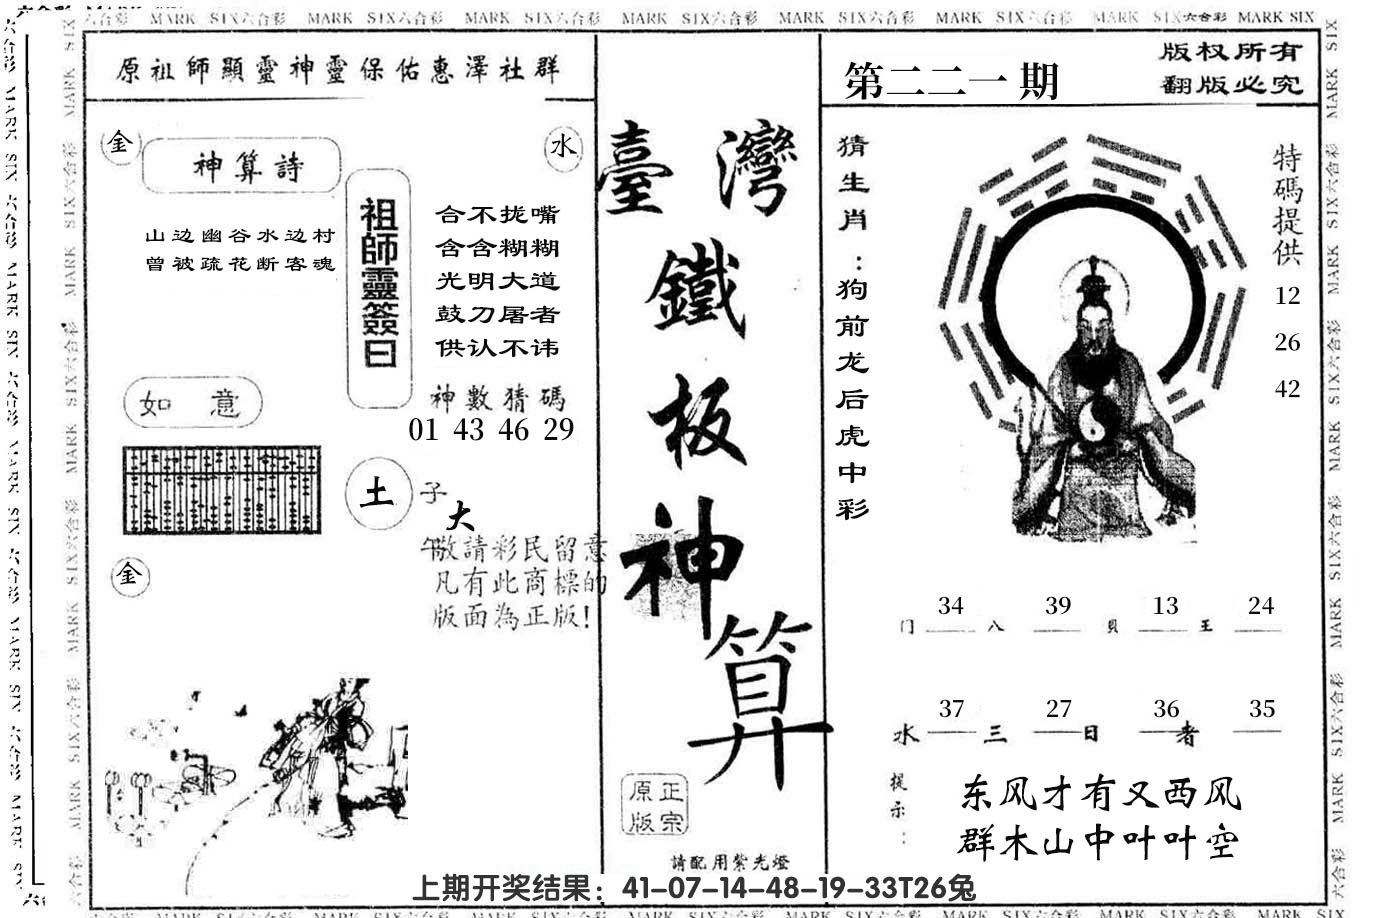 六合彩 MARK SIX六合彩 MARK SIX六合彩 MARK SIX六合彩 MARK SIX六合彩 MARK SIX六合彩 MARK SIX六合彩 MARK SIX六合彩 MARK SIX
原祖師顯靈神靈保佑惠澤社群
金
水
神算詩
山边幽谷水边村
曾被疏花断客魂
祖師靈簽曰
合不拢嘴
含含糊糊
光明大道
鼓刀屠者
供认不讳
神數猜碼
01 43 46 29
如意
土
子
大
午
敬請彩民留意
凡有此商標的
版面為正版!
金
臺灣
鐵
板
神
算
正宗
原版
請配用紫光燈
第二二一期
版权所有
翻版必究
猜生肖:狗前龙后虎中彩
特碼提供
12
26
42
34 39 13 24
门 八 貝 王
37 27 36 35
水 三 日 者
提示:
东风才有又西风
群木山中叶叶空
上期开奖结果：41-07-14-48-19-33T26兔